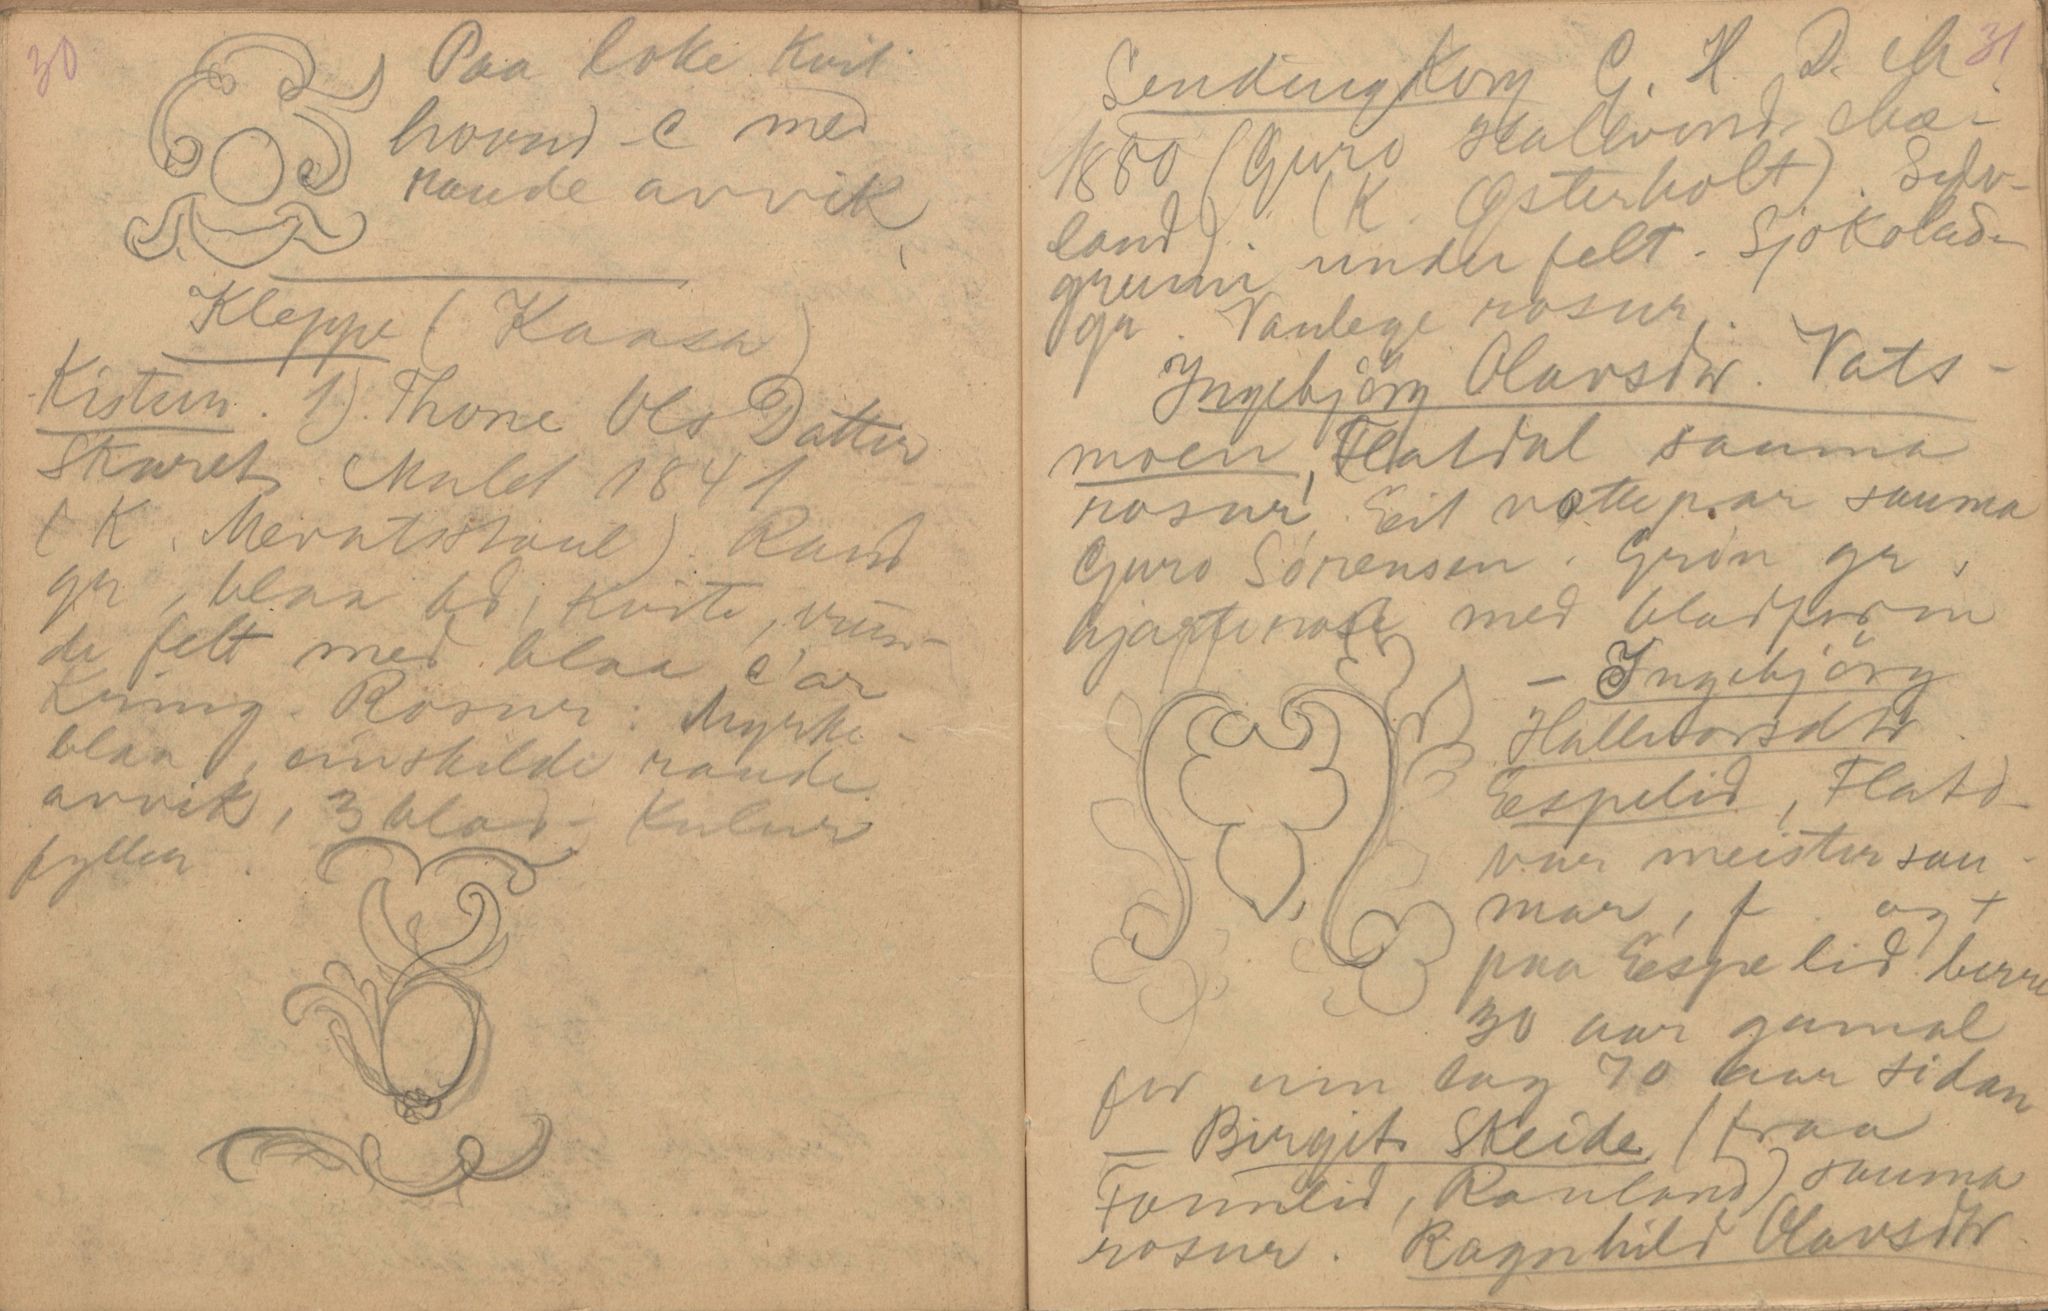 30
Paa loke kvit
hovud C med
raude avvik
Kleppe (Kaasa)
Kistur. 1). Thone Ols Datter
Skaret. Malet 1841
(K. Meratsstaul). Raud
gr, blaa bd, kvite, run-
de felt med blaa C'ar
kring. Rosur: Myrke-
blaa, einskilde raude
avvik, 3 blad - Kulur
fyller.
31
Sendingkorg G. H. D. 
1880 (Guro Hallvond.
land). (K. Østerholt). Sylv-
grunn under felt. Sjokolade
gr. Vanlege rosur.
Ingebjörg Olavsdtr. Vats-
moen, Flatdal sauma
rosur. Eit vottepar sauma
Guro Sørensen. Grøn gr,
hjarterosa med bladform
- Ingebjörg
Hallvorsdtr.
Espelid, Flatd-
var meistersau-
mar, f. og +
paa Espelid berre
30 aar gamal
for um lag 70 aar sidan
- Birgit Skeide (fraa
Fonnlid, Rauland) sauma
rosur. Ragnhild Olavsdtr